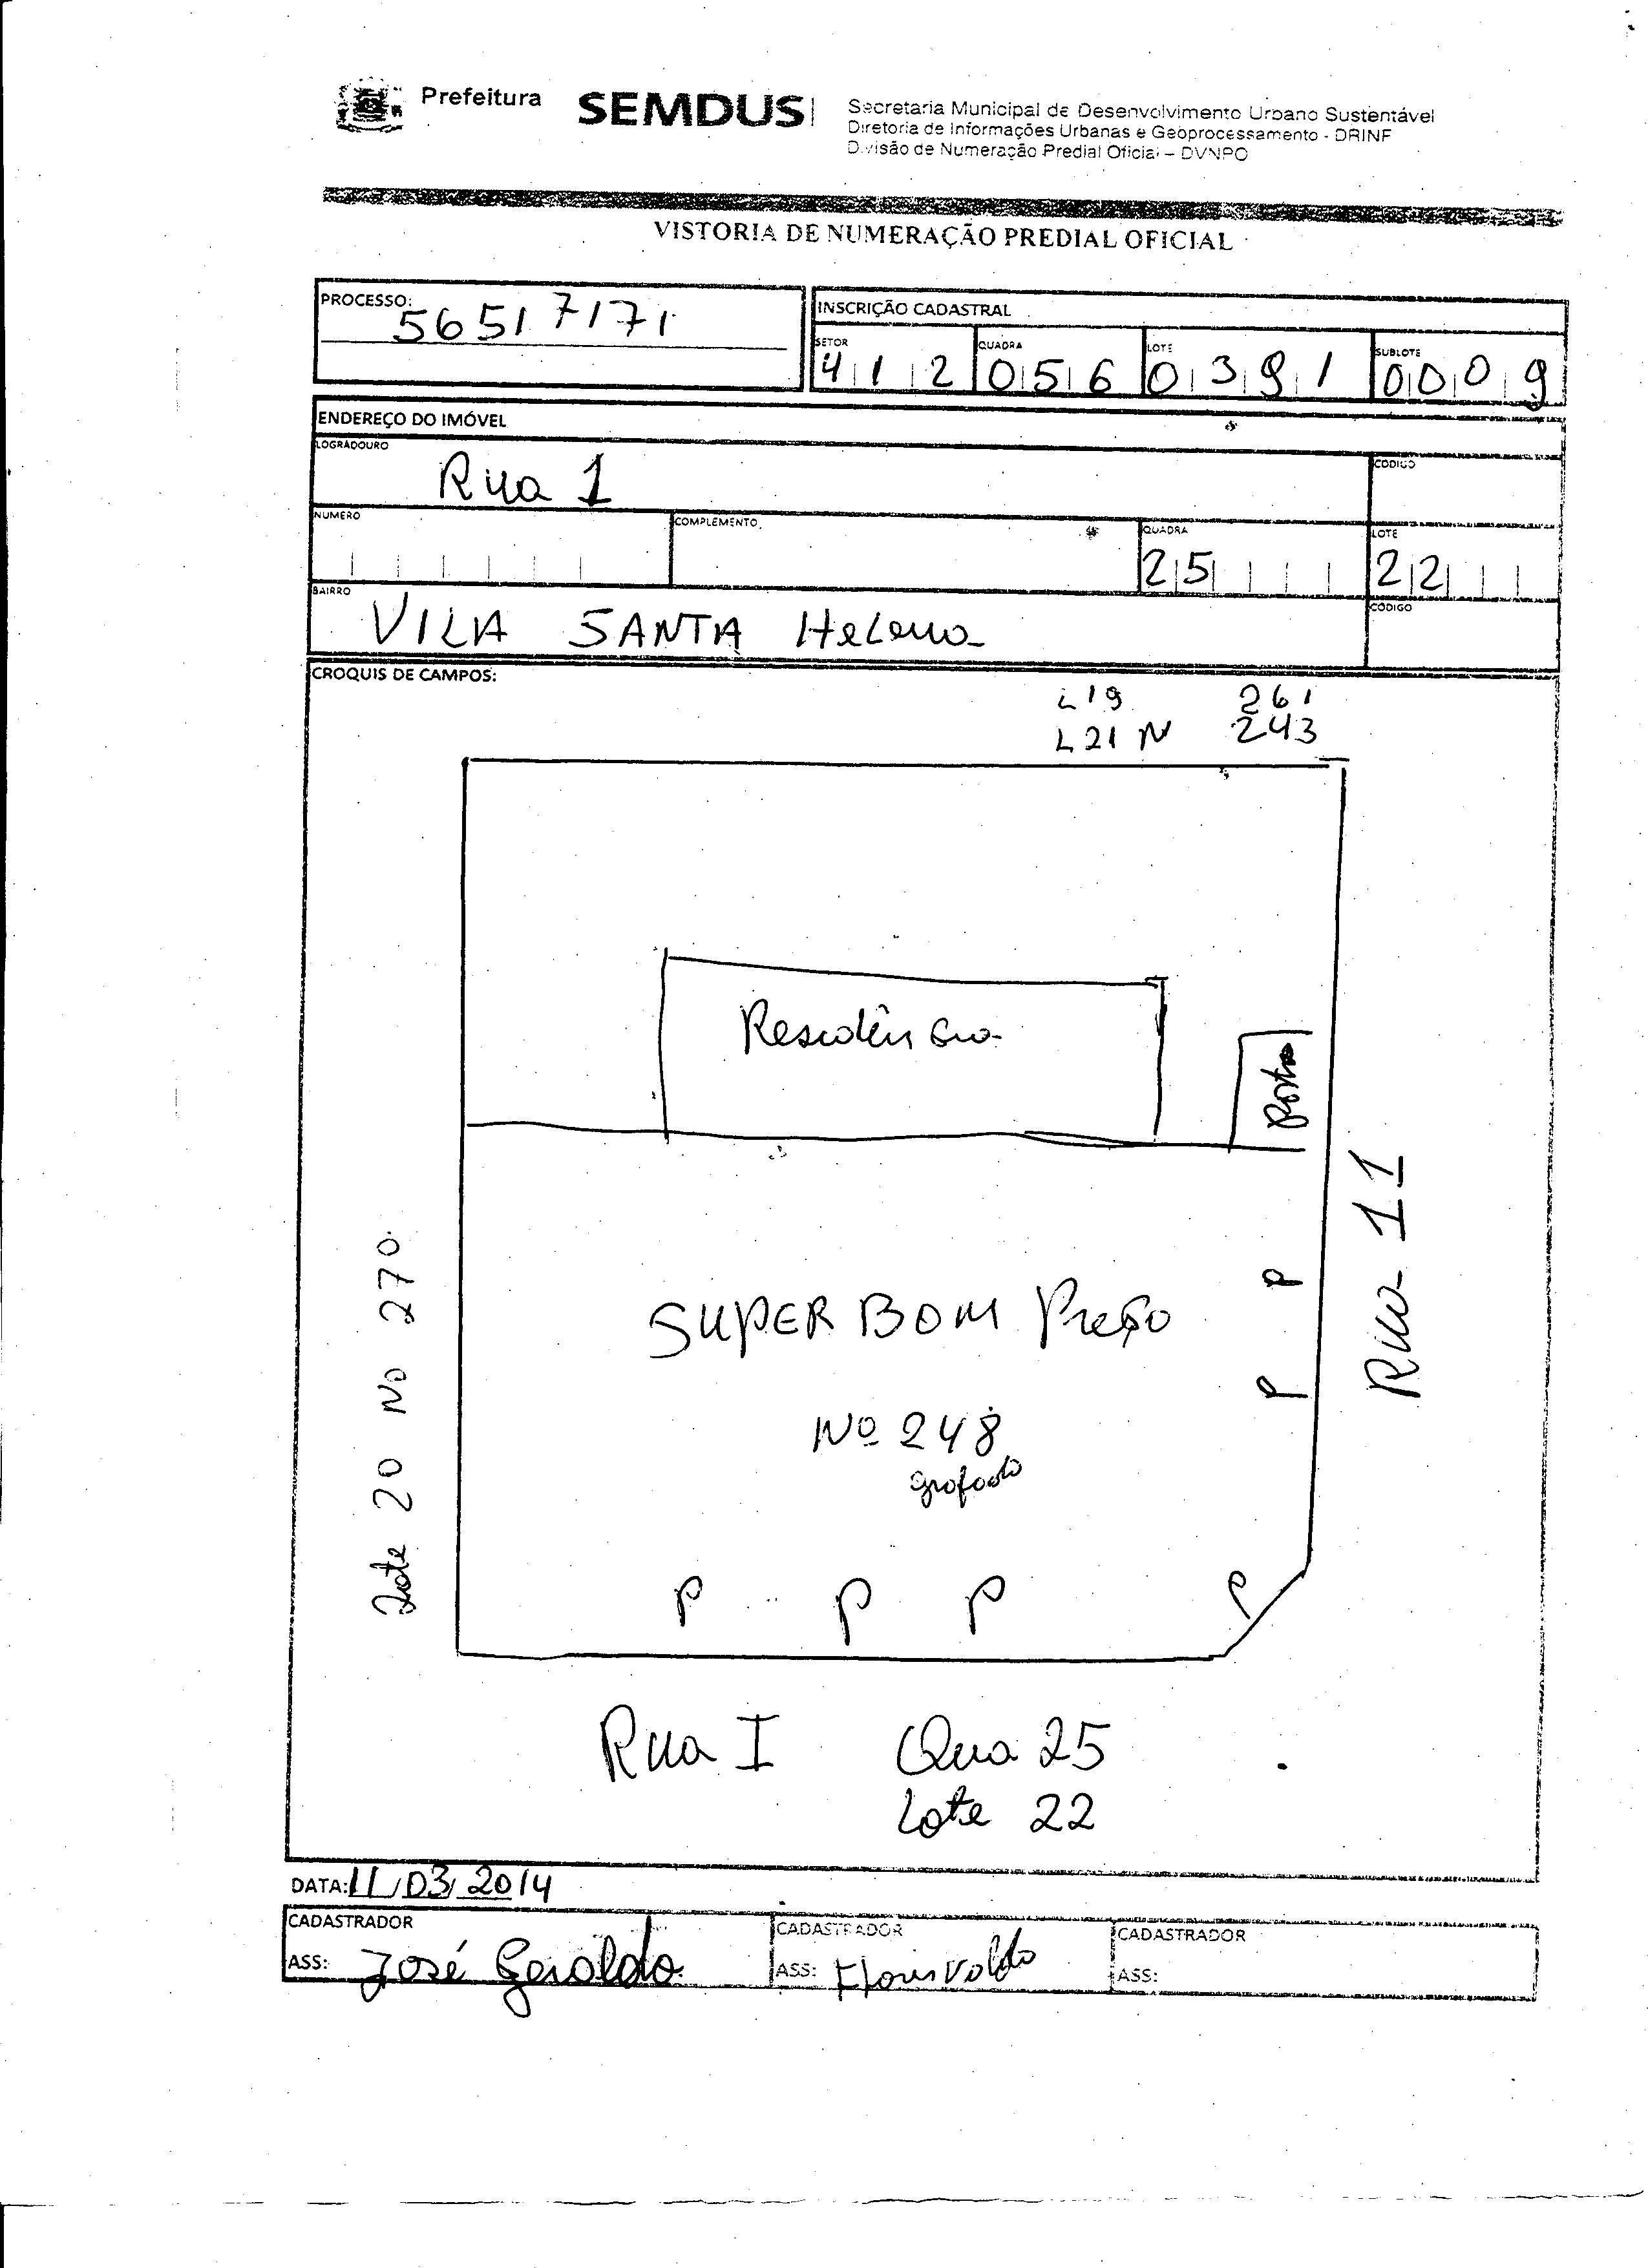 Prefeitura
SEMDUS
Secretaria Municipal de Desenvolvimento Urbano Sustentável
Diretoria de Informações Urbanas e Geoprocessamento - DRINF
Divisão de Numeração Predial Oficial – DVNPO
VISTORIA DE NUMERAÇÃO PREDIAL OFICIAL
PROCESSO: 56517171
INSCRIÇÃO CADASTRAL
SETOR QUADRA LOTE SUBLOTE
412 056 0391 0009
ENDEREÇO DO IMÓVEL
LOGRADOURO CODIGO
Rua 1
NUMERO COMPLEMENTO QUADRA LOTE
25 22
BAIRRO CÓDIGO
VILA SANTA Helena
CROQUIS DE CAMPOS:
L19 261
L21 N 243
Residência
Portão
Rua 11
Lote 20 Nº 270
SUPER BOM Preço
P
P
Nº 248
grafado
P P P P
Rua I Qua 25
Lote 22
DATA: 11/03/2014
CADASTRADOR CADASTRADOR CADASTRADOR
ASS: José Geraldo ASS: Florisvaldo ASS: